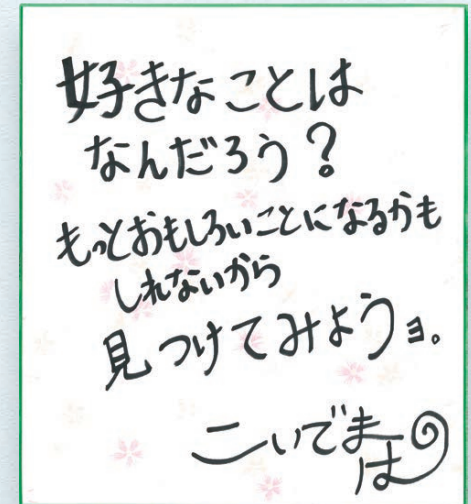 好きなことは
なんだろう?
もっとおもしろいことになるかも
しれないから
見つけてみようョ。
こいでまほ